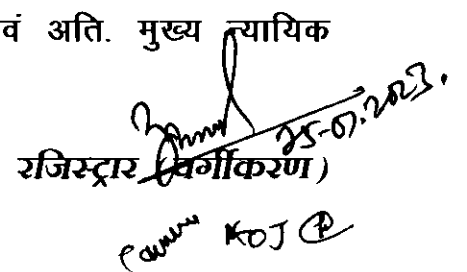 वं अति. मुख्य न्यायिक
25-07-2023.
रजिस्ट्रार (वर्गीकरण)
KOJ